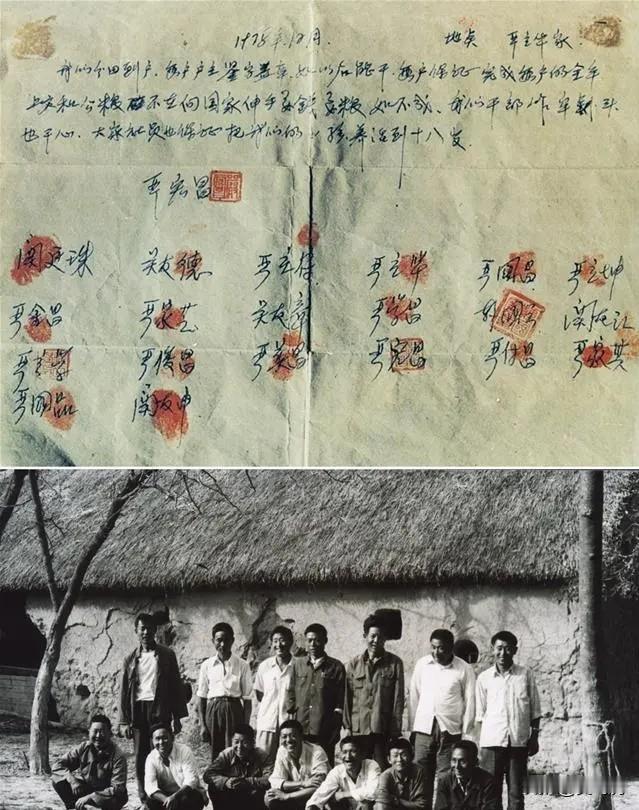 1978年12月. 地点 严立华家.
我们分田到户 每户户主签字盖章 如以后能干 每户保证完成每户的全年
上交和公粮 不在向国家伸手要钱要粮 如不成 我们干部作牢刹头
也干心 大家社员也保证把我们的小孩养活到十八岁.
严宏昌
关廷珠 关友德 严立符 严立华 严国昌 严立坤
严金昌 严家芝 关友章 严学昌 韩国云 关友江
严立学 严俊昌 严美昌 严宏昌 严付昌 严家其
严国品 关友申